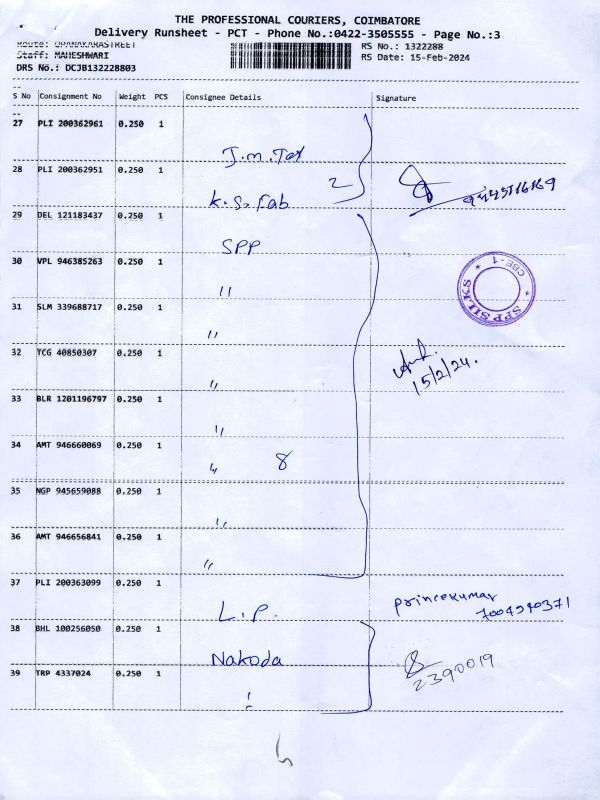 THE PROFESSIONAL COURIERS, COIMBATORE
Delivery Runsheet - PCT - Phone No.:0422-3505555 - Page No.:3
Route: UPANAKARASTREET RS No.: 1322288
Staff: MAHESHWARI RS Date: 15-Feb-2024
DRS No.: DCJB132228803
S No Consignment No Weight PCS Consignee Details Signature
27 PLI 200362961 0.250 1
J.M.Tex
28 PLI 200362951 0.250 1
K.S.Fab 2
29 DEL 121183437 0.250 1
SPP
30 VPL 946385263 0.250 1
"
CBE-1
SPP SILKS
31 SLM 339688717 0.250 1
"
32 TCG 40850307 0.250 1
15/2/24.
"
33 BLR 1201196797 0.250 1
"
34 AMT 946660069 0.250 1
" 8
35 NGP 945659088 0.250 1
"
36 AMT 946656841 0.250 1
"
37 PLI 200363099 0.250 1
princekumar
L.P. 7004540371
38 BHL 100256050 0.250 1
Nakoda
2390019
39 TRP 4337024 0.250 1
"